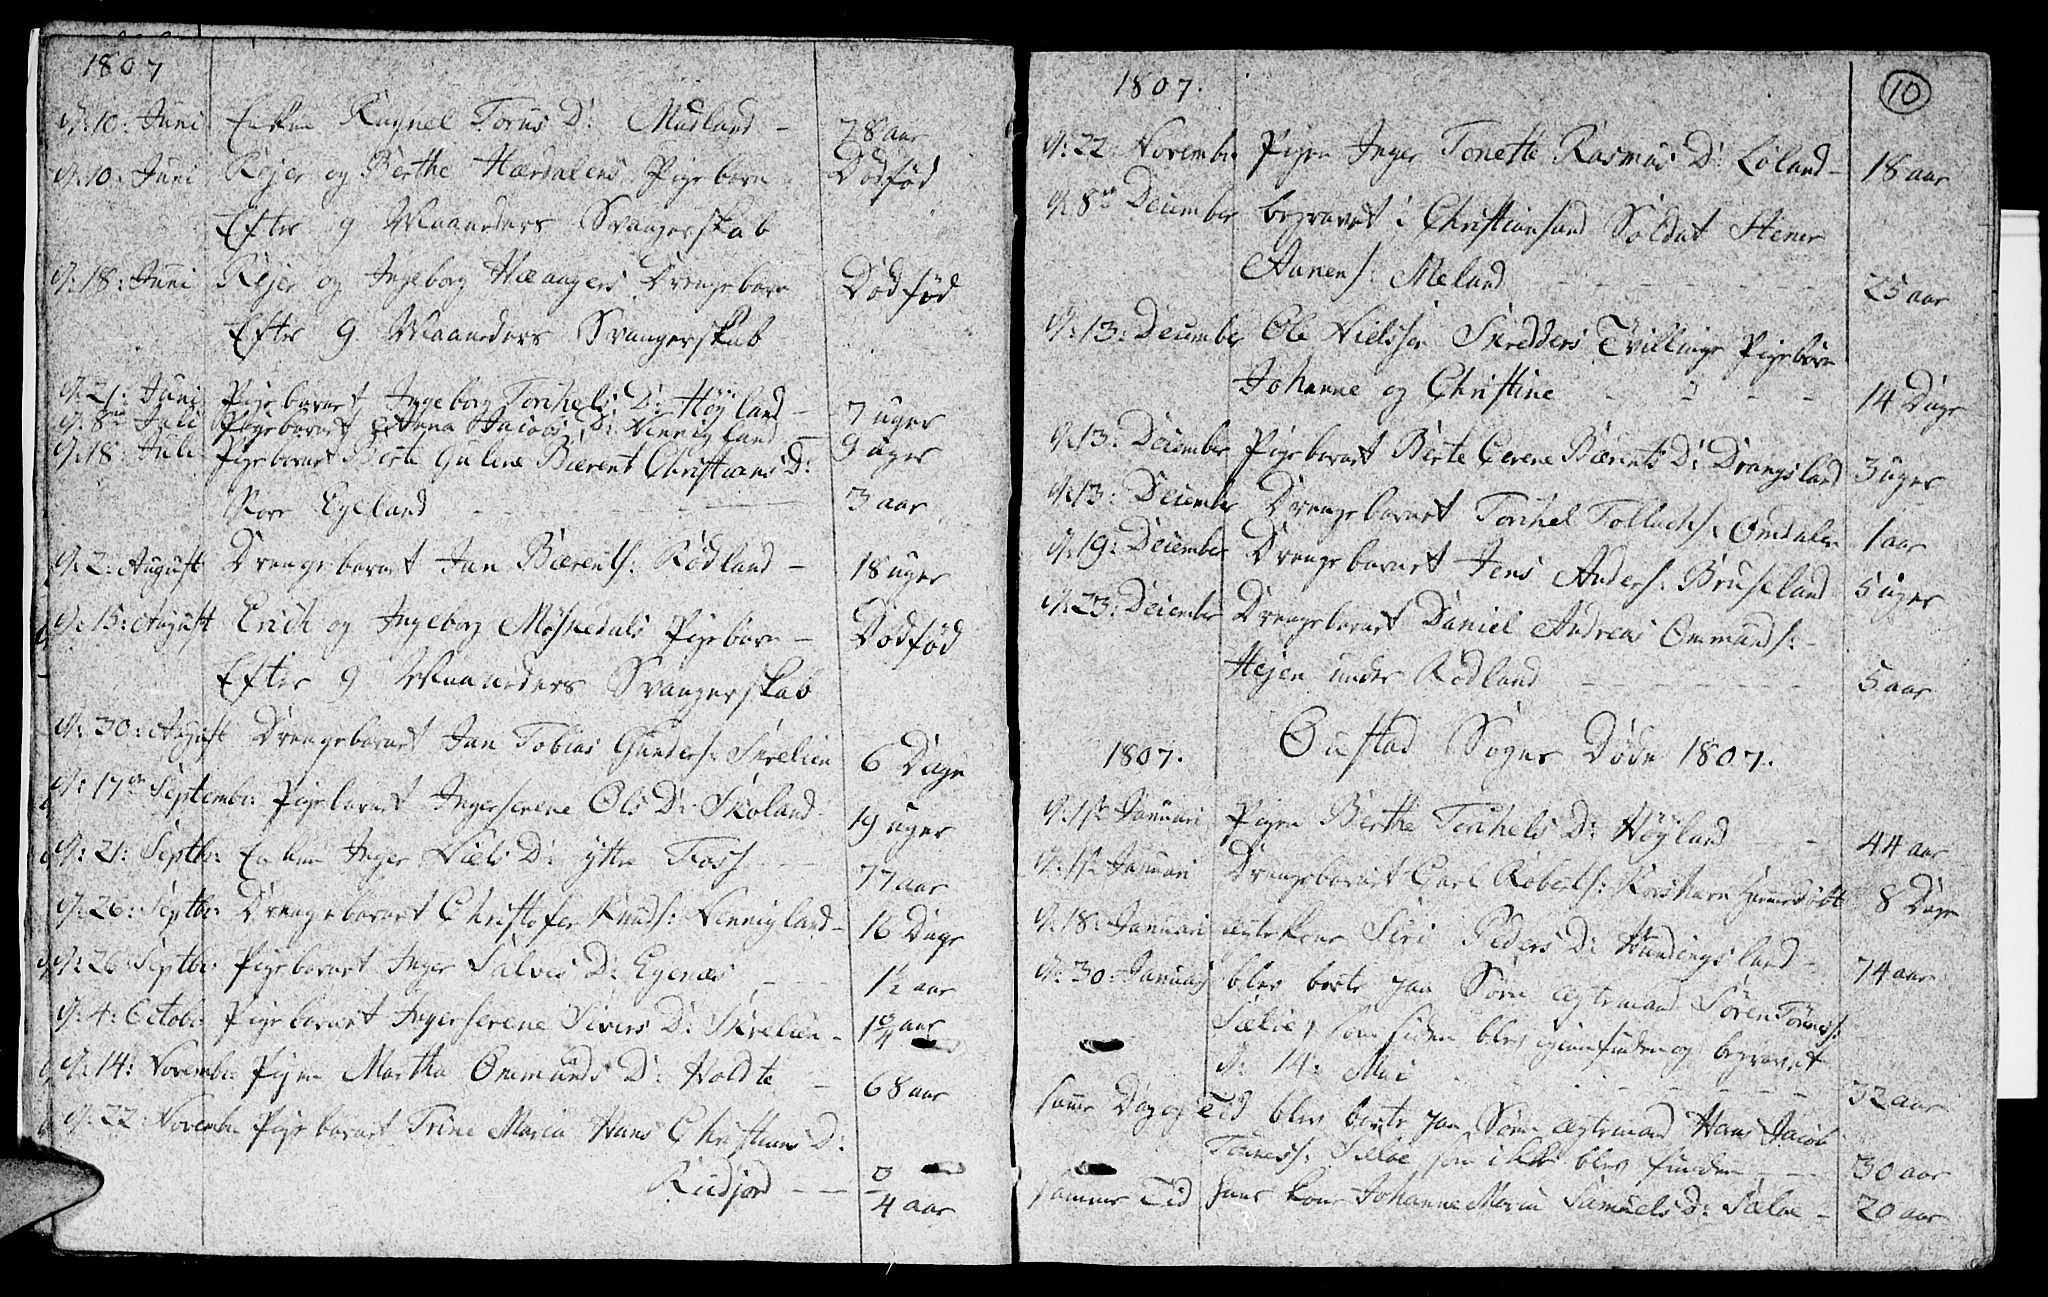 1807
d: 10: Juni Enken Ragnel Torns D: Mudland - 78 aar
d: 10: Juni Rejer og Berthe Hærdalens Pigebarn Dødfød
Efter 9 Maaneders Svangerskab
d: 18: Juni Rejer og Ingeborg Hæaagers Drengebarn Dødfød
Efter 9 Maaneders Svangerskab
d: 21: Juni Pigebarnet Ingeborg Torchels D: Høyland - 7 uger
d: 8de Juli Pigebarnet Anna Jacobs D: Nennigland - 9 uger
d: 18: Juli Pigebarnet Berte Guline Bærent Christians D:
Egeland 3 aar
d: 2: August Drengebarnet Jan Bærents: Rødland - 18 uger
d: 15: August Erich og Ingeborg Møskedals Pigebarn - Dødfød
Efter 9 Maaneders Svangerskab
d: 30: August Drengebarnet Jan Tobias Gunders: Skrelien 6 Dage
d: 17de Septembr: Pigebarnet Ingerserene Ols D: Skoland 19 uger
d: 21: Septbr: Enken Inger Niels D: ytre Foss 77 aar
d: 26: Septbr: Drengebarnet Christofer Knuds: Nennigland - 16 Dage
d: 26: Septbr: Pigebarnet Inger Salves D: Egenæs 1½ aar
d: 4: Octobr: Pigebarnet Ingerserene Sivers D: Skrelien - 1¾ aar
d: 14: Novembr: Pigen Martha Ommunds D: Holdte - 68 aar
d: 22: Novembr: Pigebarnet Trine Maria Hans Christians D:
Rudjord - - ¾ aar
1807. 10
d: 22: Novembr: Pigen Inger Tonette Rasmus D: Løland - 18 aar
d: 8de December begravet i Christiansand Soldat Stener
Aanens: Meland 25 aar
d: 13: December Ole Nielssøn Skredders Tvillinge Pigebørn
Johanne og Christine 14 Dage
d: 13: December Pigebarnet Berte Serene Bærents D: Drangsland 3 uger
d: 13: December Drengebarnet Torchel Tollachs: Omdalen 1 aar
d: 19: December Drengebarnet Jens Anders: Bruseland 5 uger
d: 23: December Drengebarnet Daniel Andreas Ommunds: -
Hejen under Rødland 5 aar
1807. Øustad Sogns Døde 1807.
d: 1ste Januari Pigen Berthe Torchels D: Høyland - - 44 aar
d: 1ste Januari Drengebarnet Carl Roberts: 8 Dage
d: 18: Januari ægtekone Siri Peders D: Hundingsland - 74 aar
d: 30: Januarj blev borte paa Søen ægtemand Søren Tønnes:
Sæløe, som siden blev igienfunden og begravet
d: 14: Mai 32 aar
samme Dag og Tid blev borte paa Søen ægtemand Hans Jacob
Tønness: Sæløe, som ikke blev funden 30 aar
samme Tid hans kone Johanne Maria Samuels D: Sæløe - 20 aar